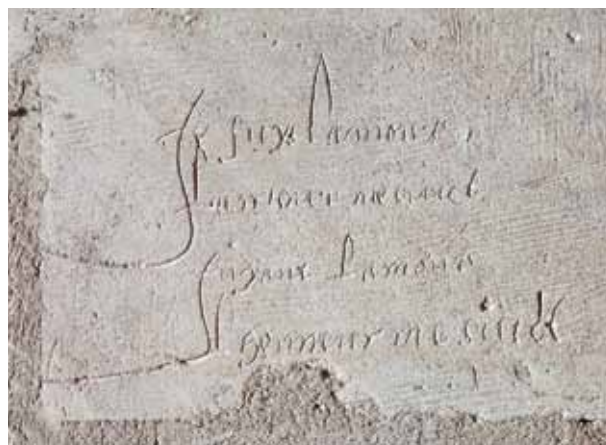 Je fuys lamour
lamour me suict
fuyant lamour
me suict